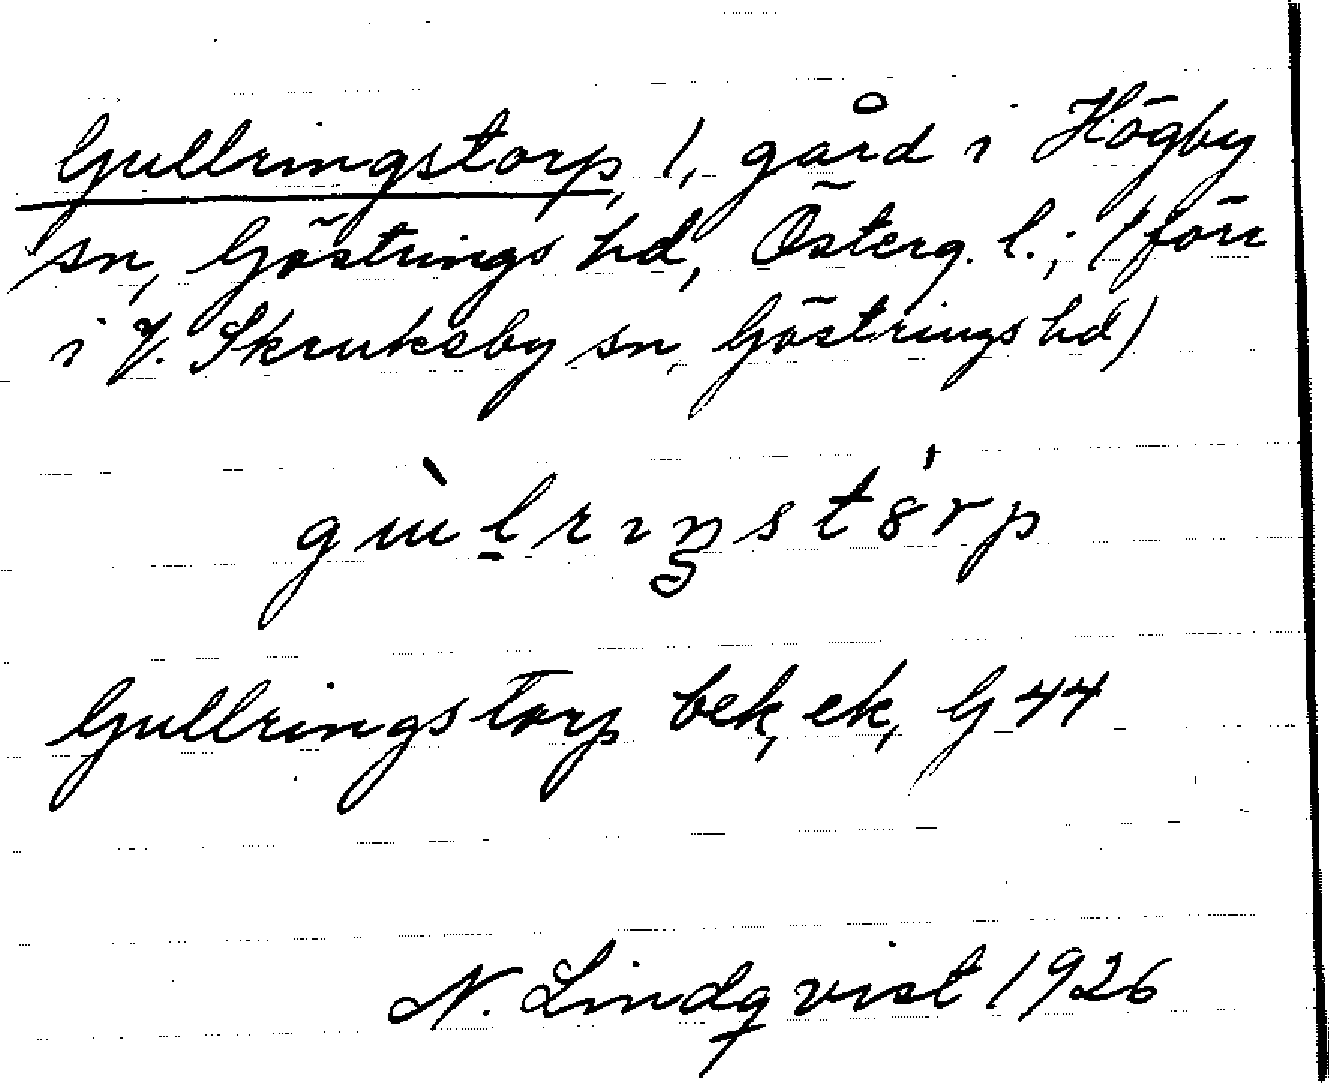 Gullringstorp, 1, gård i Högby
sn, Göstrings hd, Österg. l.; (förr
i V. Skruksby sn, Göstrings hd)
gùlrıŋstȯrp
Gullringstorp bek, ek, G 44
N. Lindqvist 1926